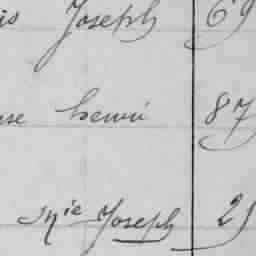 is Joseph 69
se henri 87
Mie Joseph 29